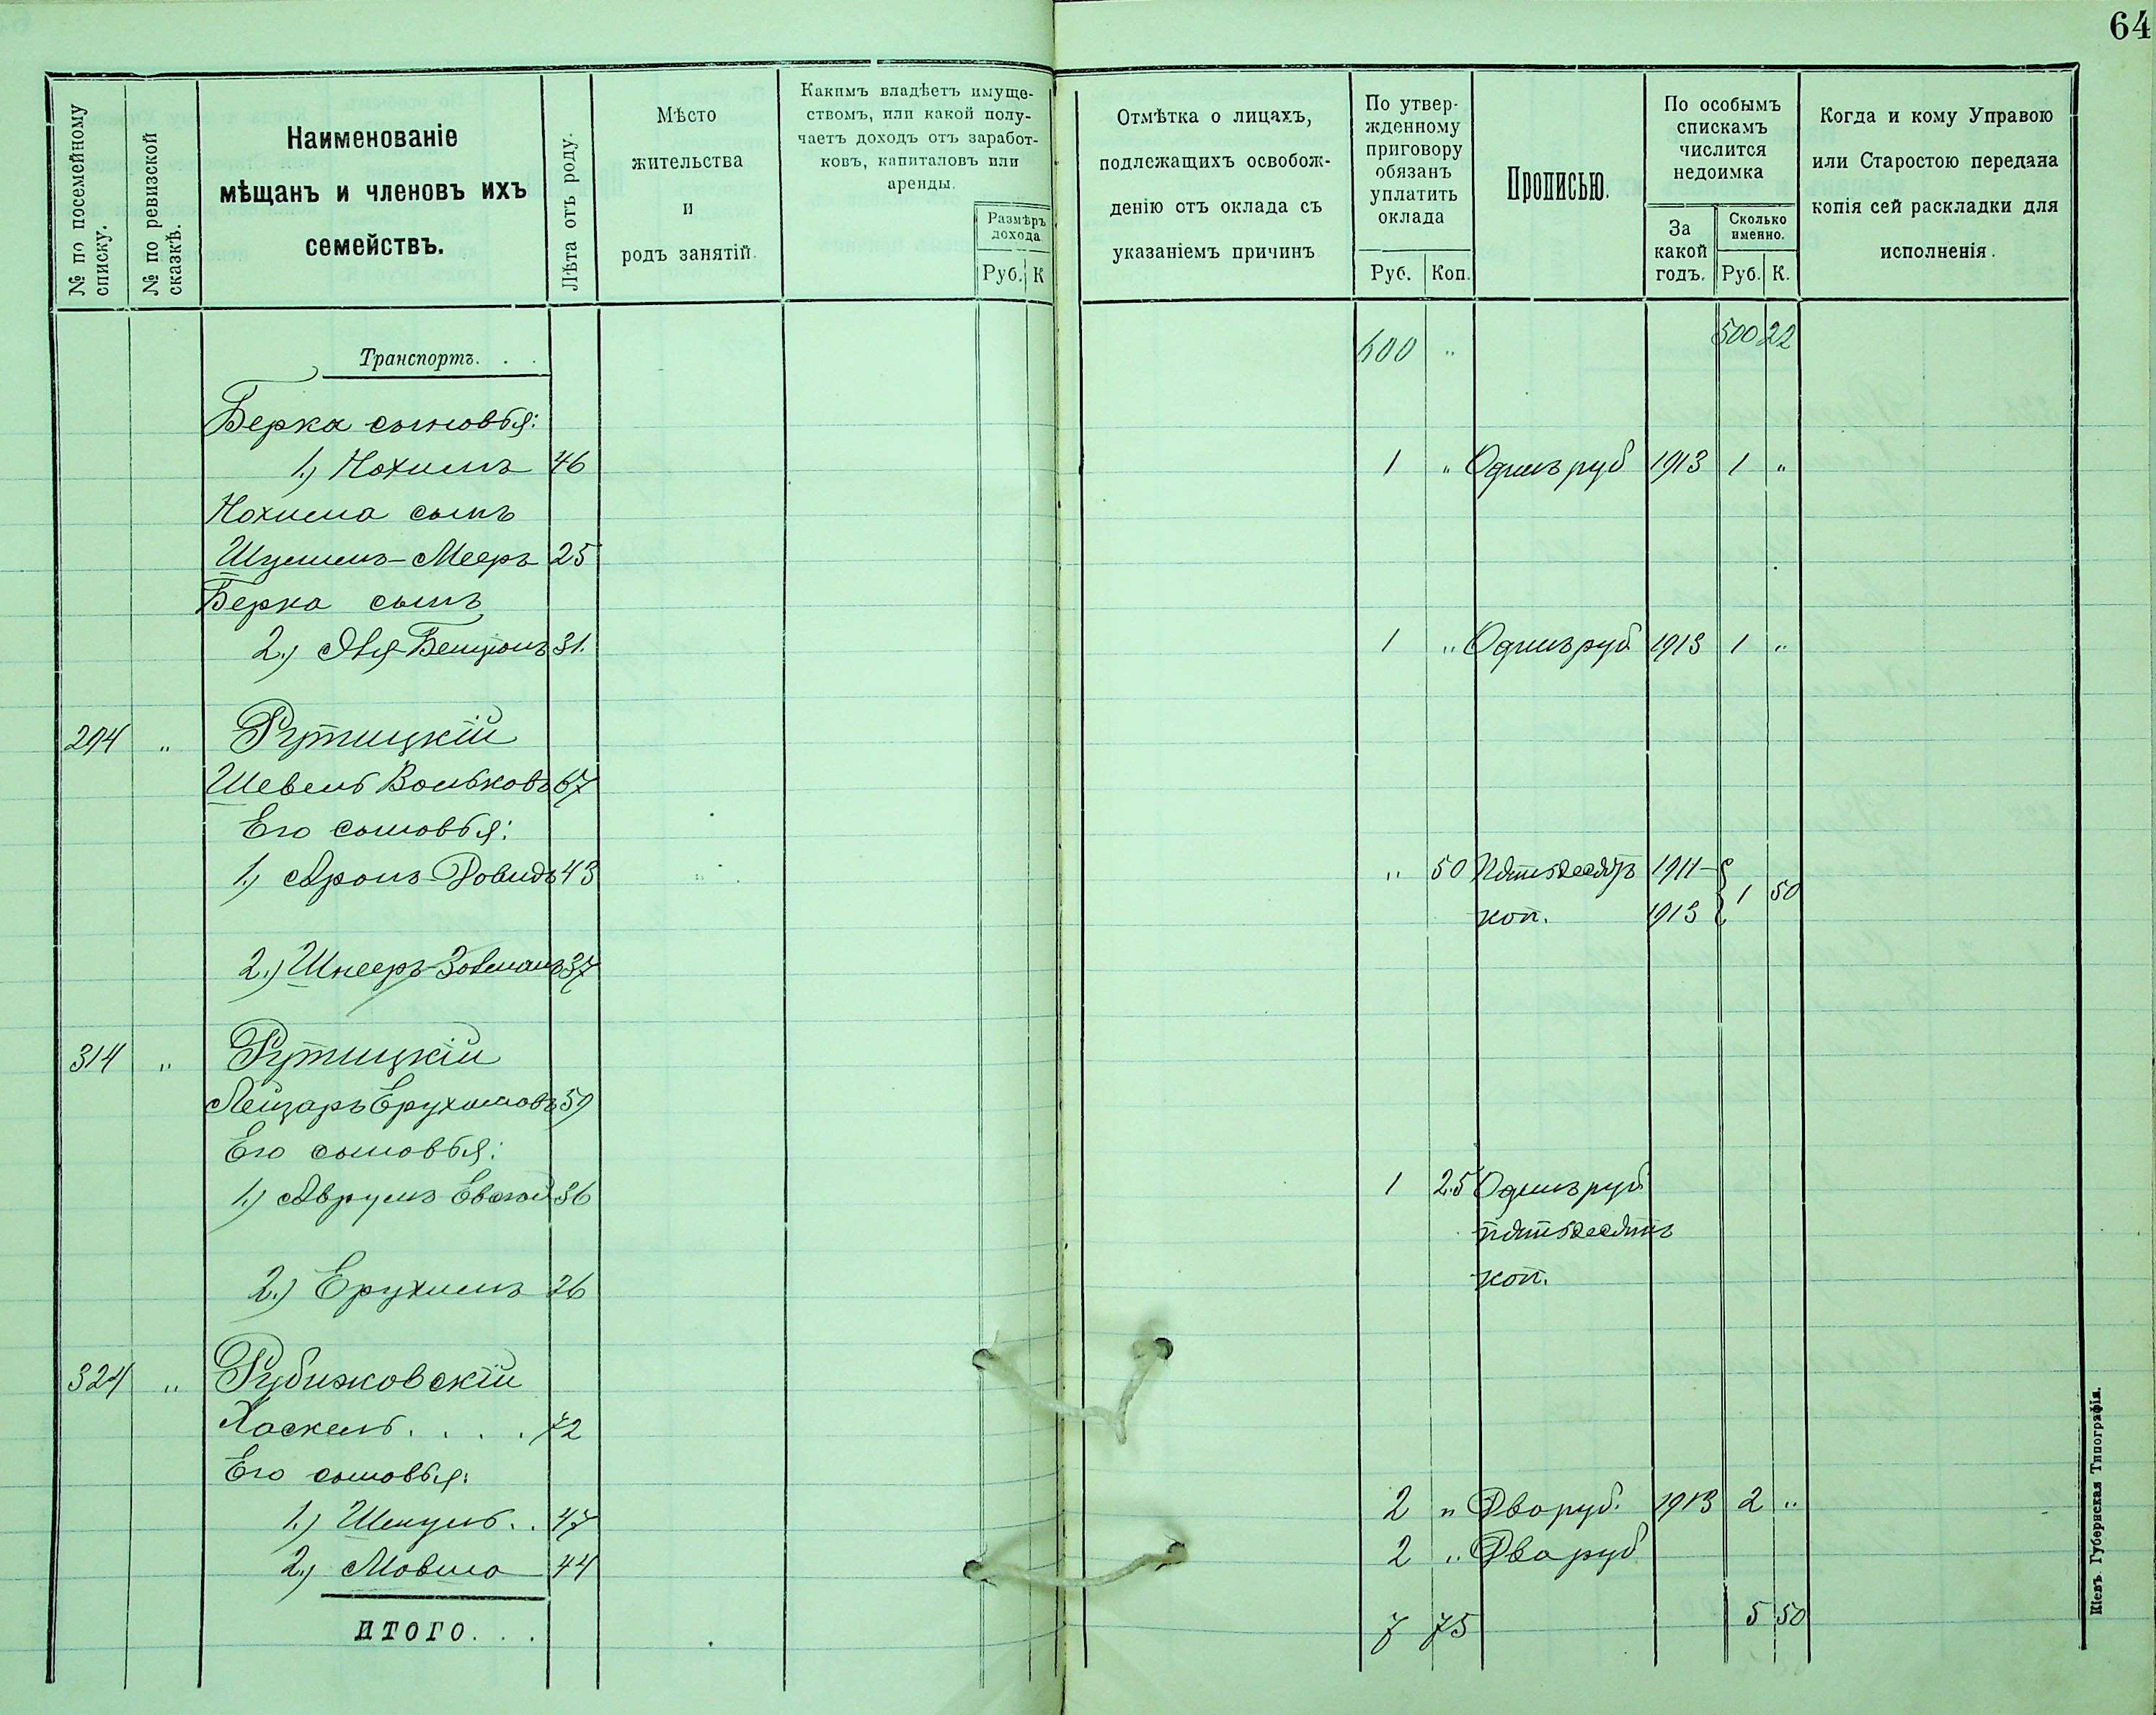 64
№ по посемейному списку.
№ по ревизской сказкѣ.
Наименованіе
мѣщанъ и членовъ ихъ
семействъ.
Лѣта отъ роду.
Мѣсто
жительства
и
родъ занятій.
Какимъ владѣетъ имуще-
ствомъ, или какой полу-
чаетъ доходъ отъ заработ-
ковъ, капиталовъ или
аренды.
Размѣръ
дохода
Руб. К
Отмѣтка о лицахъ,
подлежащихъ освобож-
денію отъ оклада съ
указаніемъ причинъ
По утвер-
жденному
приговору
обязанъ
уплатить
оклада
Руб. Коп.
Прописью.
По особымъ
спискамъ
числится
недоимка
За
какой
годъ.
Сколько
именно.
Руб. К.
Когда и кому Управою
или Старостою передана
копія сей раскладки для
исполненія.
Транспортъ. . . 600 " 500 22
Берка сыновья:
1.) Нохимъ 46 1 " Одинъ руб 1913 1 "
Нохима сынъ
Шулимъ-Мееръ 25
Берка сынъ
2.) 31. 1 " Одинъ руб 1913 1 "
294 " Рутицкій
Шевель Вольковъ 67
Его сыновья:
1.) Аронъ-Довидъ 43 " 50 Пятьдесятъ 1911- 1 50
коп. 1913
2.) Шнееръ-Золманъ 37
314 " Рутицкій
Лейзаръ Ерухимовъ 59
Его сыновья:
1.) Аврумъ 36 1 25 Одинъ руб
пятьдесятъ
2.) Ерухимъ 26 коп.
324 " Рубижовскій
Хаскель. . . . 72
Его сыновья:
1.) Шмуль. . 47 2 " Два руб. 1913 2 "
2.) Мовша 44 2 " Два руб
ИТОГО. . . 7 75 5 50
Кіевъ. Губернская Типографія.